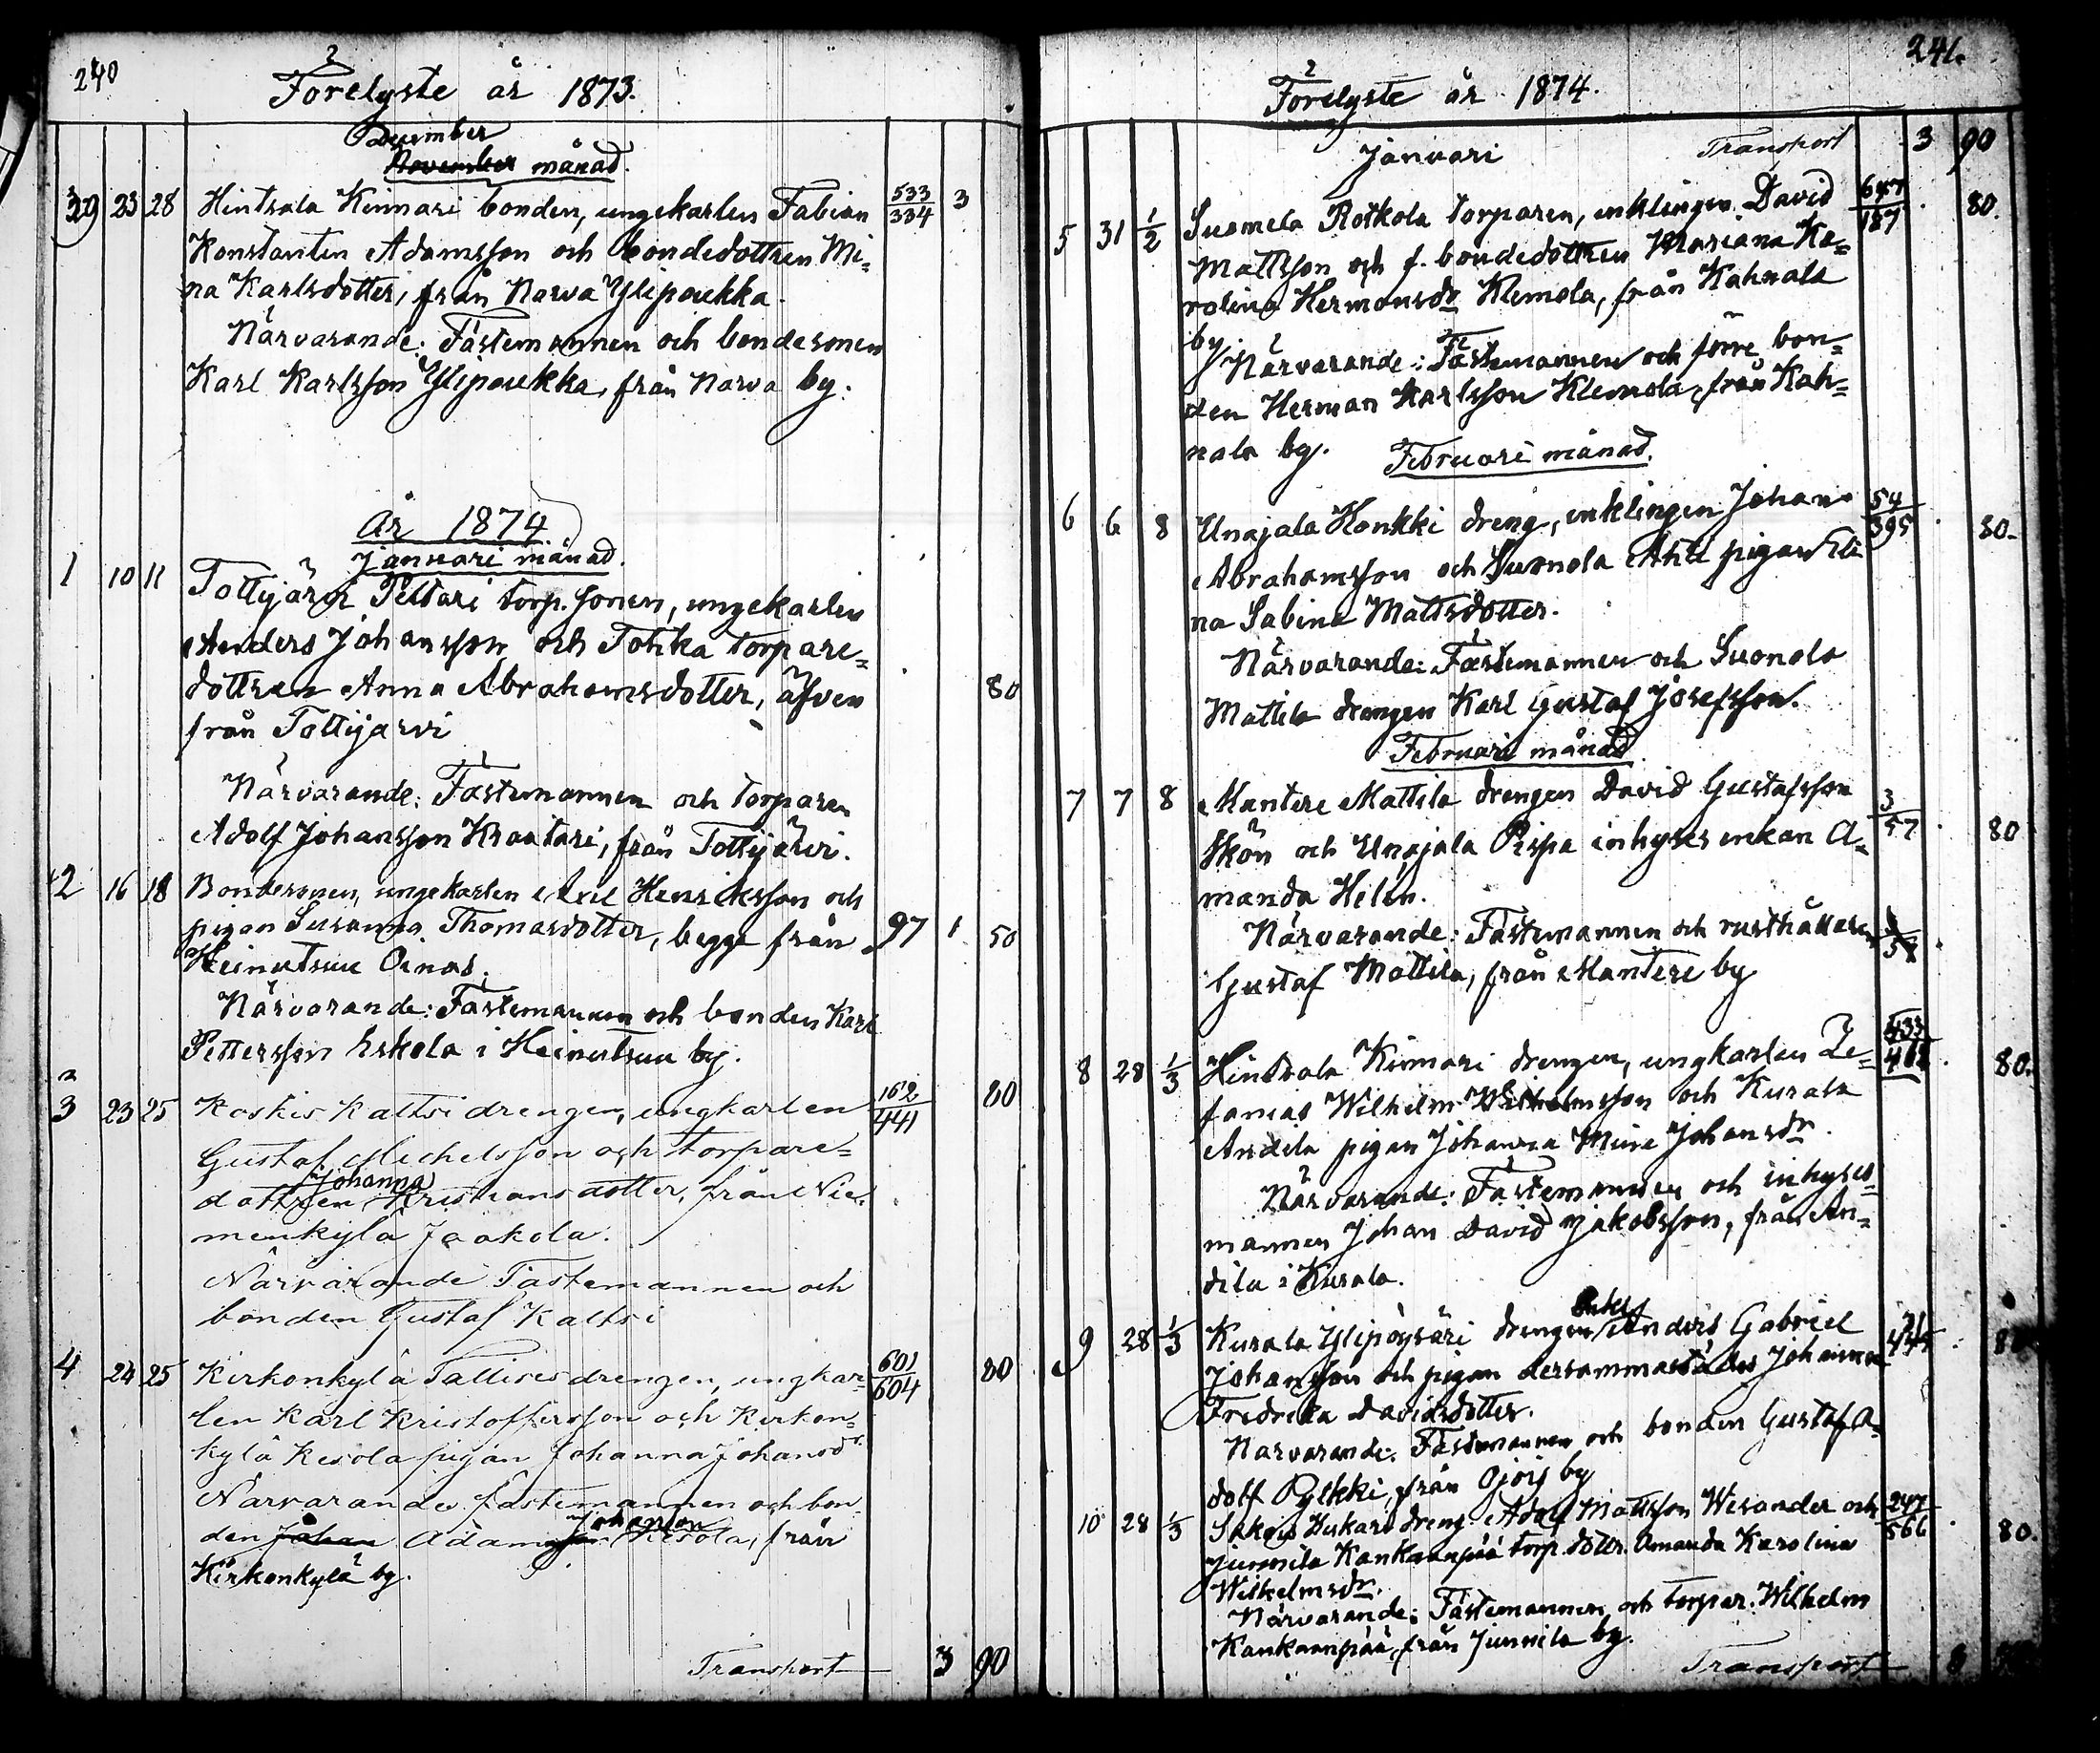 240
Förelyste år 1873.
December
November månad.
39 23 28 Hintsala Kinnari bonden, ungekarlen Fabian 533/334 3
Konstantin Adamsson och bondedottren Mi=
na Karlsdotter, från Narva Ylipoukka.
Närvarande: Fästemannen och bondesonen
Karl Karlsson Ylipoukka, från Narva by.
År 1874
Januari månad.
1 10 11 Tottijärvi Pettari torp.sonen, ungekarlen
Anders Johansson och Tohka torpare=
dottren Anna Abrahamsdotter, äfven 80
från Tottijärvi
Närvarande: Fästemannen och torparen
Adolf Johansson Kraatari, från Tottijärvi.
2 16 18 Bondesonen, ungekarlen Axel Henriksson och
pigan Susanna Thomasdotter, begge från 97 1 50
Heinutsuu Oinas.
Närvarande: Fästemannen och bonden Karl
Pettersson Eskola i Heinutsuu by.
3 23 25 Koskis Kaltsi drengen, ungkarlen 162/441 80
Gustaf Michelsson och torpare=
Johanna
dottren Kristiansdotter, från Nie=
menkylä Jaakola.
Närvarande Fästemannen och
bonden Gustaf Kaltsi
4 24 25 Kirkonkylä Tallises drengen, ungkar= 601/604 80
len Karl Kristoffersson och Kirkon=
kylä Kesola pigan Johanna Johansdr
Närvarande fästemannen och bon
Johanson
den Johan Adamsson Kesola, från
Kirkonkylä by.
Transport 3 90
241.
Förelyste år 1874.
Januari Transport 3 90
5 31 1/2 Suomela Rotkola torparen, enklingen David 647/187 80.
Mattsson och f. bondedottren Mariana Ka=
rolina Hermansdr Klemola, från Kahnala
by.
Närvarande: Fästemannen och förre bon=
den Herman Karlsson Klemola, från Kah=
nala by.
Februari månad.
6 6 8 Unajala Honkki dreng, enklingen Johan 54/395 80.
Abrahamsson och Suonola Antti pigan Eli
na Sabina Mattsdotter.
Närvarande: Fästemannen och Suonola
Mattila drengen Karl Gustaf Josefsson.
Februari månad
7 7 8 Mantere Mattila drengen David Gustafsson 3/57 80
Skön och Unajala Pispa inhyses enkan A=
manda Helin.
Närvarande: Fästemannen och rusthållaren
Gustaf Mattila, från Mantere by
8 28 1/3 Hintsala Kinnari drengen, ungkarlen Ze= 80.
fanias Wilhelm Wilhelmsson och Kurala
Andila pigan Johanna Mina Johansdr.
Närvarande: Fästemannen och inhyses=
mannen Johan David Jakobsson, från An=
dila i Kurala.
9 28 1/3 Kurala Ylipöysäri drengen Anders Gabriel
Johansson och pigan dersammastädes Johanna
Fredrika Davidsdotter.
Närvarande: Fästemannen och bonden Gustaf A=
dolf Pylkki, från Ojois by
10 28 1/3 dreng. Adolf Mattsson Wesander och 247/566 80.
Junnila Kankaanpää torp. dottr. Amanda Karolina
Wilhelmsdr.
Närvarande: Fästemannen och torpar. Wilhelm
Kankaanpää, från Junnila by.
Transport